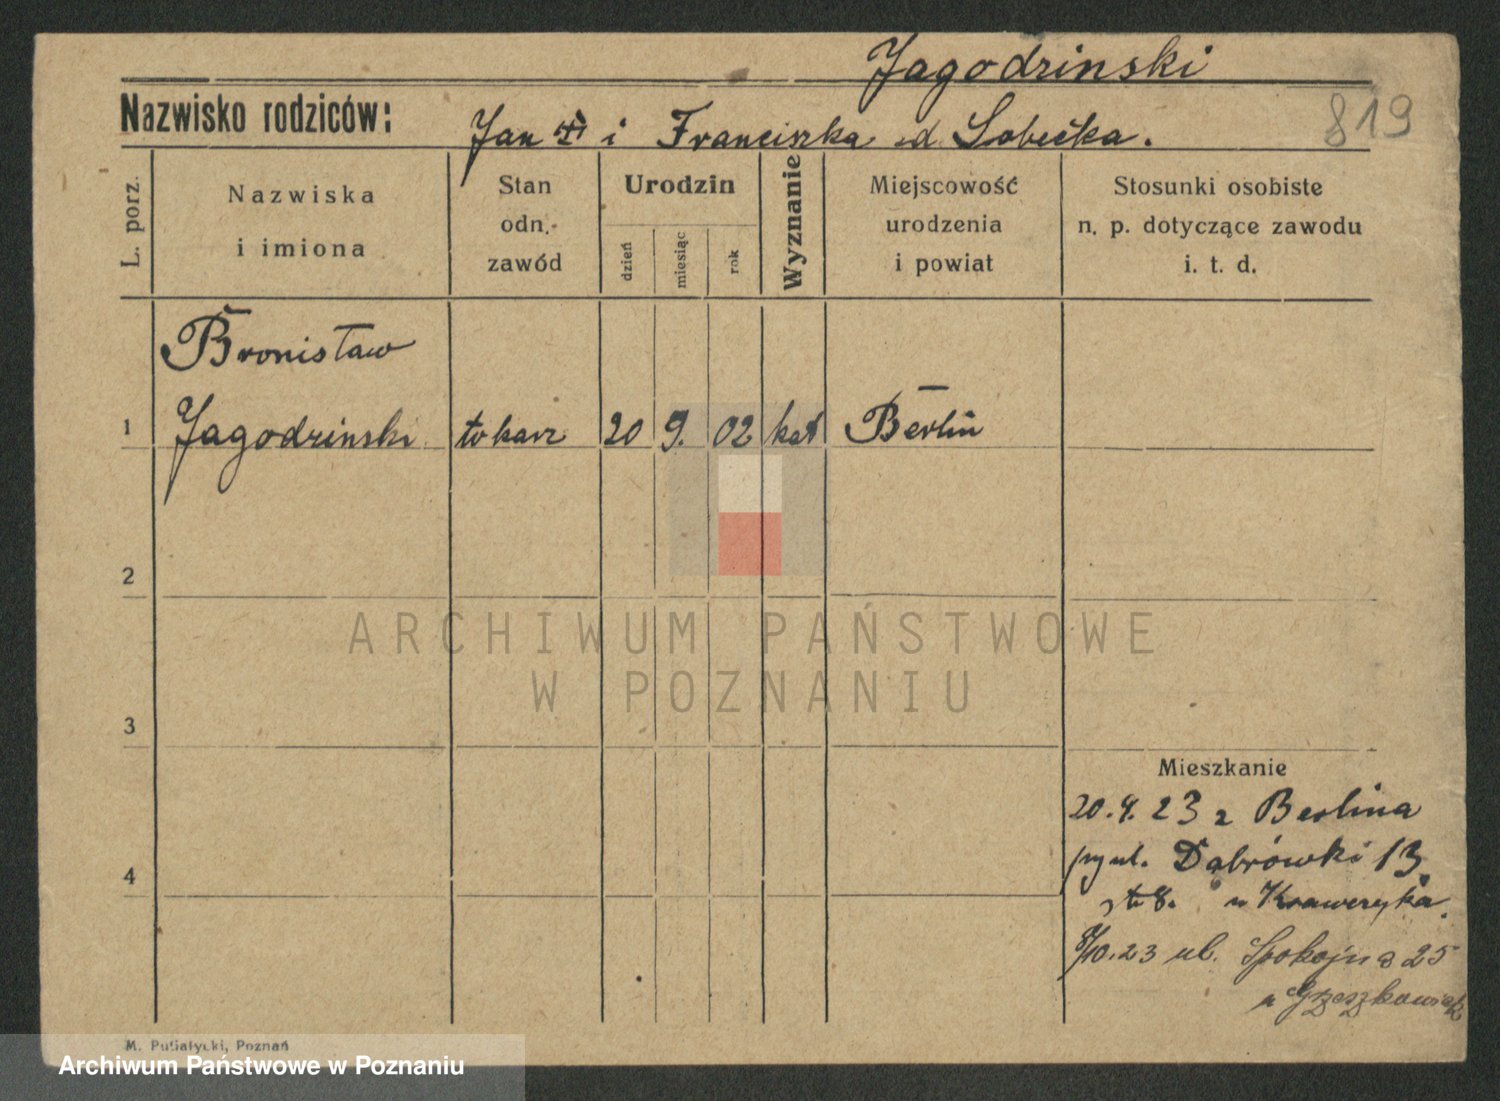 Jagodzinski
819
Nazwisko rodziców:
Jan i Franciszka d. Sobecka.
L. porz.
Nazwiska
i imiona
Stan
odn.
zawód
Urodzin
dzień
miesiąc
rok
Wyznanie
Miejscowość
urodzenia
i powiat
Stosunki osobiste
n. p. dotyczące zawodu
i. t. d.
Bronisław
1 Jagodzinski tokarz 20 9. 02 kat Berlin
2
ARCHIWUM PAŃSTWOWE
W POZNANIU
3
Mieszkanie
20.9.23 z Berlina
Dąbrówki 13
u Kraweryka.
8/10.23 ul. Spokojna 25
u
4
M. Putiatycki, Poznań
Archiwum Państwowe w Poznaniu